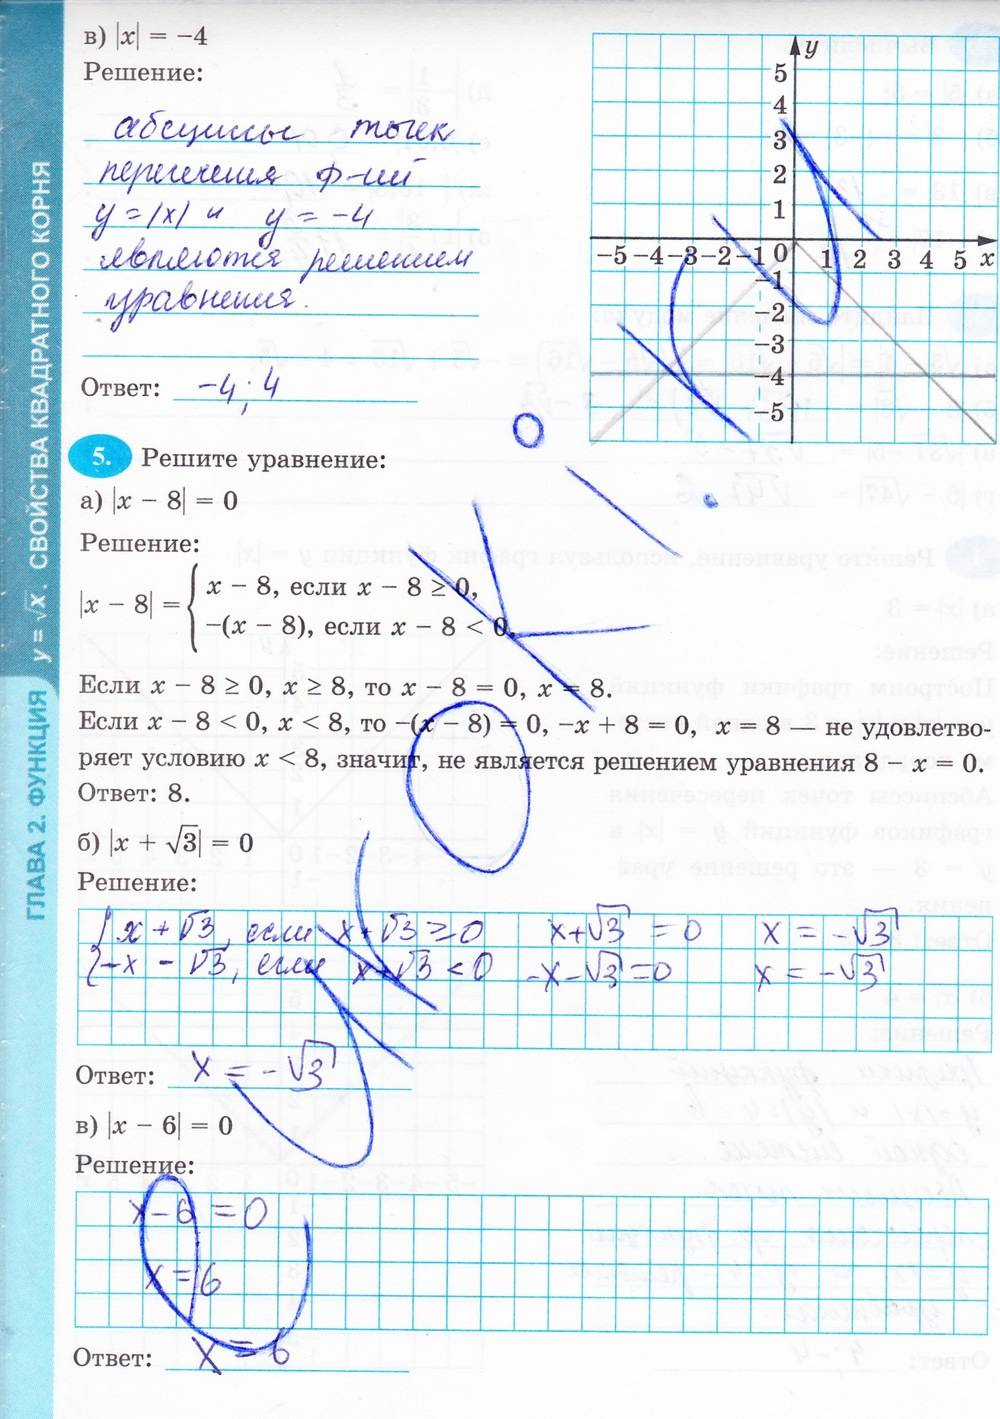 в) |x| = −4
Решение:
абсциссы точек
пересечения ф-ций
y = |x| и y = −4
являются решением
уравнения.
Ответ: −4; 4
y
5
4
3
2
1
−5 −4 −3 −2 −1 0 1 2 3 4 5 x
−1
−2
−3
−4
−5
5. Решите уравнение:
а) |x − 8| = 0
Решение:
|x − 8| = { x − 8, если x − 8 ≥ 0,
−(x − 8), если x − 8 < 0.
Если x − 8 ≥ 0, x ≥ 8, то x − 8 = 0, x = 8.
Если x − 8 < 0, x < 8, то −(x − 8) = 0, −x + 8 = 0, x = 8 — не удовлетво-
ряет условию x < 8, значит, не является решением уравнения 8 − x = 0.
Ответ: 8.
б) |x + √3| = 0
Решение:
{ x + √3, если x + √3 ≥ 0 x + √3 = 0 x = −√3
−x − √3, если x + √3 < 0 −x − √3 = 0 x = −√3
Ответ: x = −√3
в) |x − 6| = 0
Решение:
x − 6 = 0
x = 6
Ответ: x = 6
ГЛАВА 2. ФУНКЦИЯ y = √x. СВОЙСТВА КВАДРАТНОГО КОРНЯ